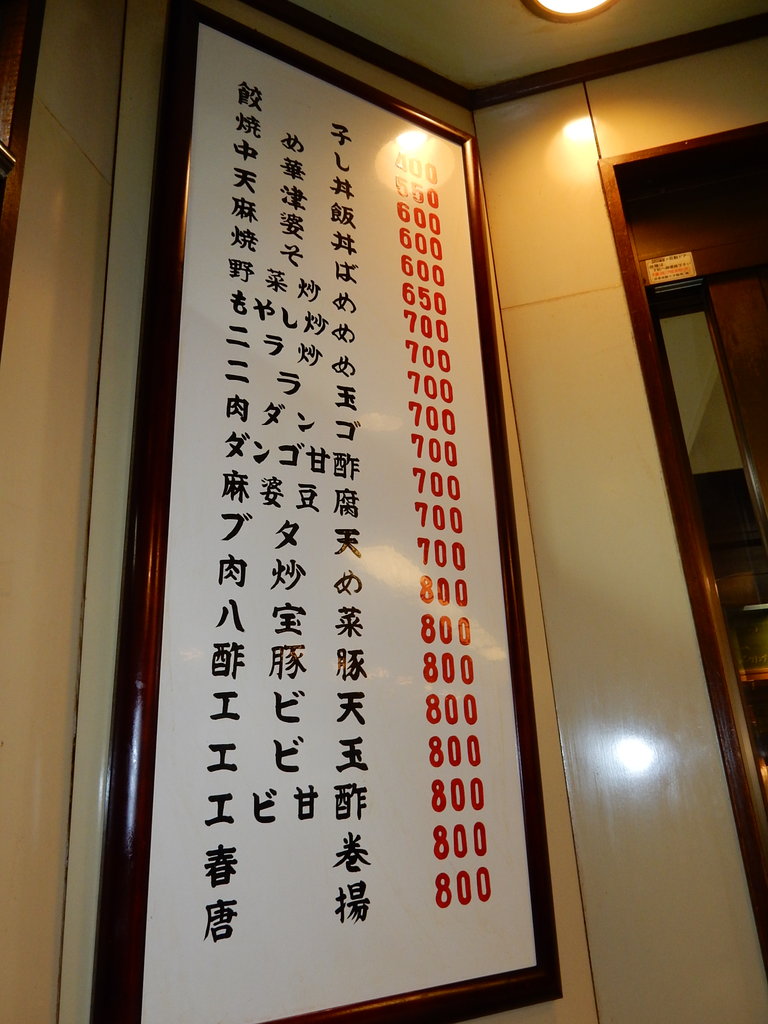 餃子 400
焼めし 550
中華丼 600
天津飯 600
麻婆丼 600
焼そば 650
野菜炒め 700
もやし炒め 700
ニラ炒め 700
ニラ玉 700
肉ダンゴ 700
ダンゴ甘酢 700
麻婆豆腐 700
ブタ天 700
肉炒め 800
八宝菜 800
酢豚豚 800
エビ天 800
エビ玉 800
エビ甘酢 800
春巻 800
唐揚 800